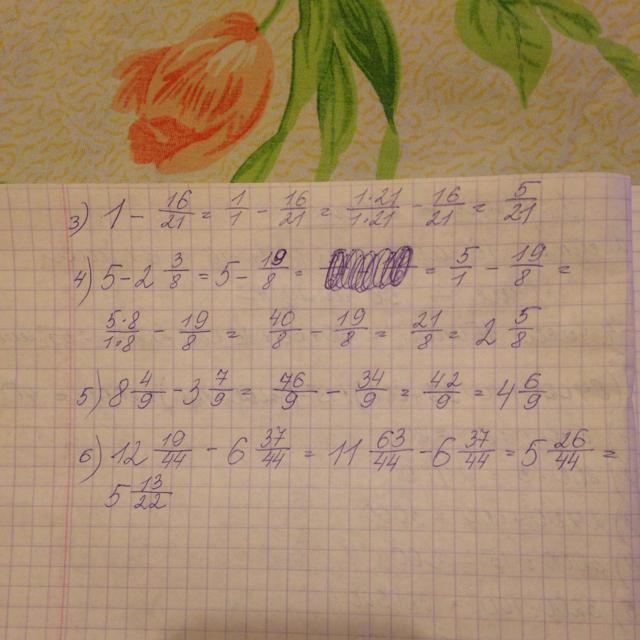 3) 1 - 16/21 = 1/1 - 16/21 = 1·21/1·21 - 16/21 = 5/21
4) 5 - 2 3/8 = 5 - 19/8 = = 5/1 - 19/8 =
5·8/1·8 - 19/8 = 40/8 - 19/8 = 21/8 = 2 5/8
5) 8 4/9 - 3 7/9 = 76/9 - 34/9 = 42/9 = 4 6/9
6) 12 19/44 - 6 37/44 = 11 63/44 - 6 37/44 = 5 26/44 =
5 13/22